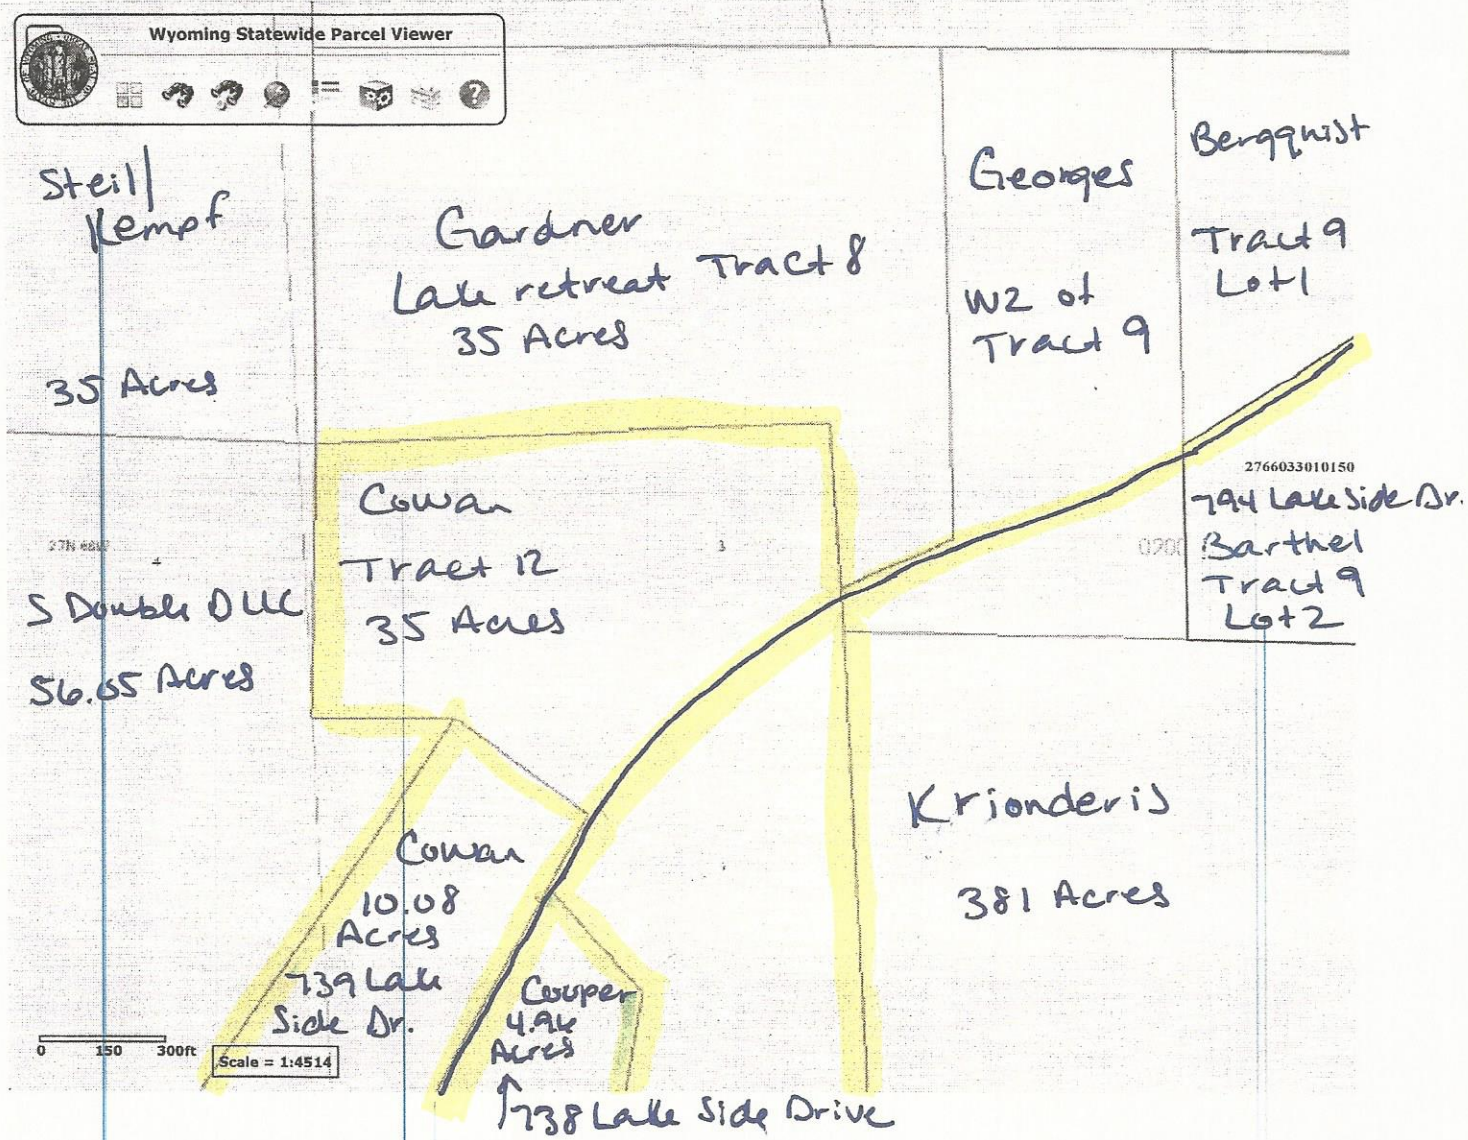 Wyoming Statewide Parcel Viewer
Steil/
Kempf
35 Acres
Gardner
Lake retreat Tract 8
35 Acres
Georges
W2 of
Tract 9
Bergquist
Tract 9
Lot 1
2766033010150
794 Lake Side Dr.
Barthel
Tract 9
Lot 2
Cowan
Tract 12
35 Acres
3
0200
27N 68W
4
S Double D LLC
56.05 Acres
Krionderis
381 Acres
Cowan
10.08
Acres
739 Lake
Side Dr.
Cooper
4.96
Acres
738 Lake Side Drive
0 150 300ft
Scale = 1:4514